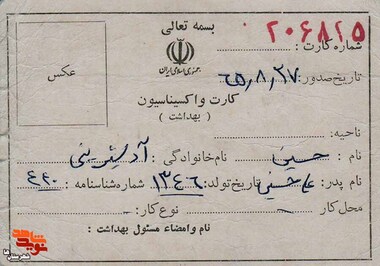 بسمه تعالی
شماره کارت: ۲۰۶۸۱۵
جمهوری اسلامی ایران
تاریخ صدور: ۶۵٫۸٫۲۷
عکس
کارت واکسیناسیون
( بهداشت )
ناحیه:
نام: حسین نام خانوادگی:
نام پدر: تاریخ تولد: ۱۳۴۶ شماره شناسنامه: ۴۴۰
محل کار - نوع کار: -
نام و امضاء مسئول بهداشت:
نوید شاهد